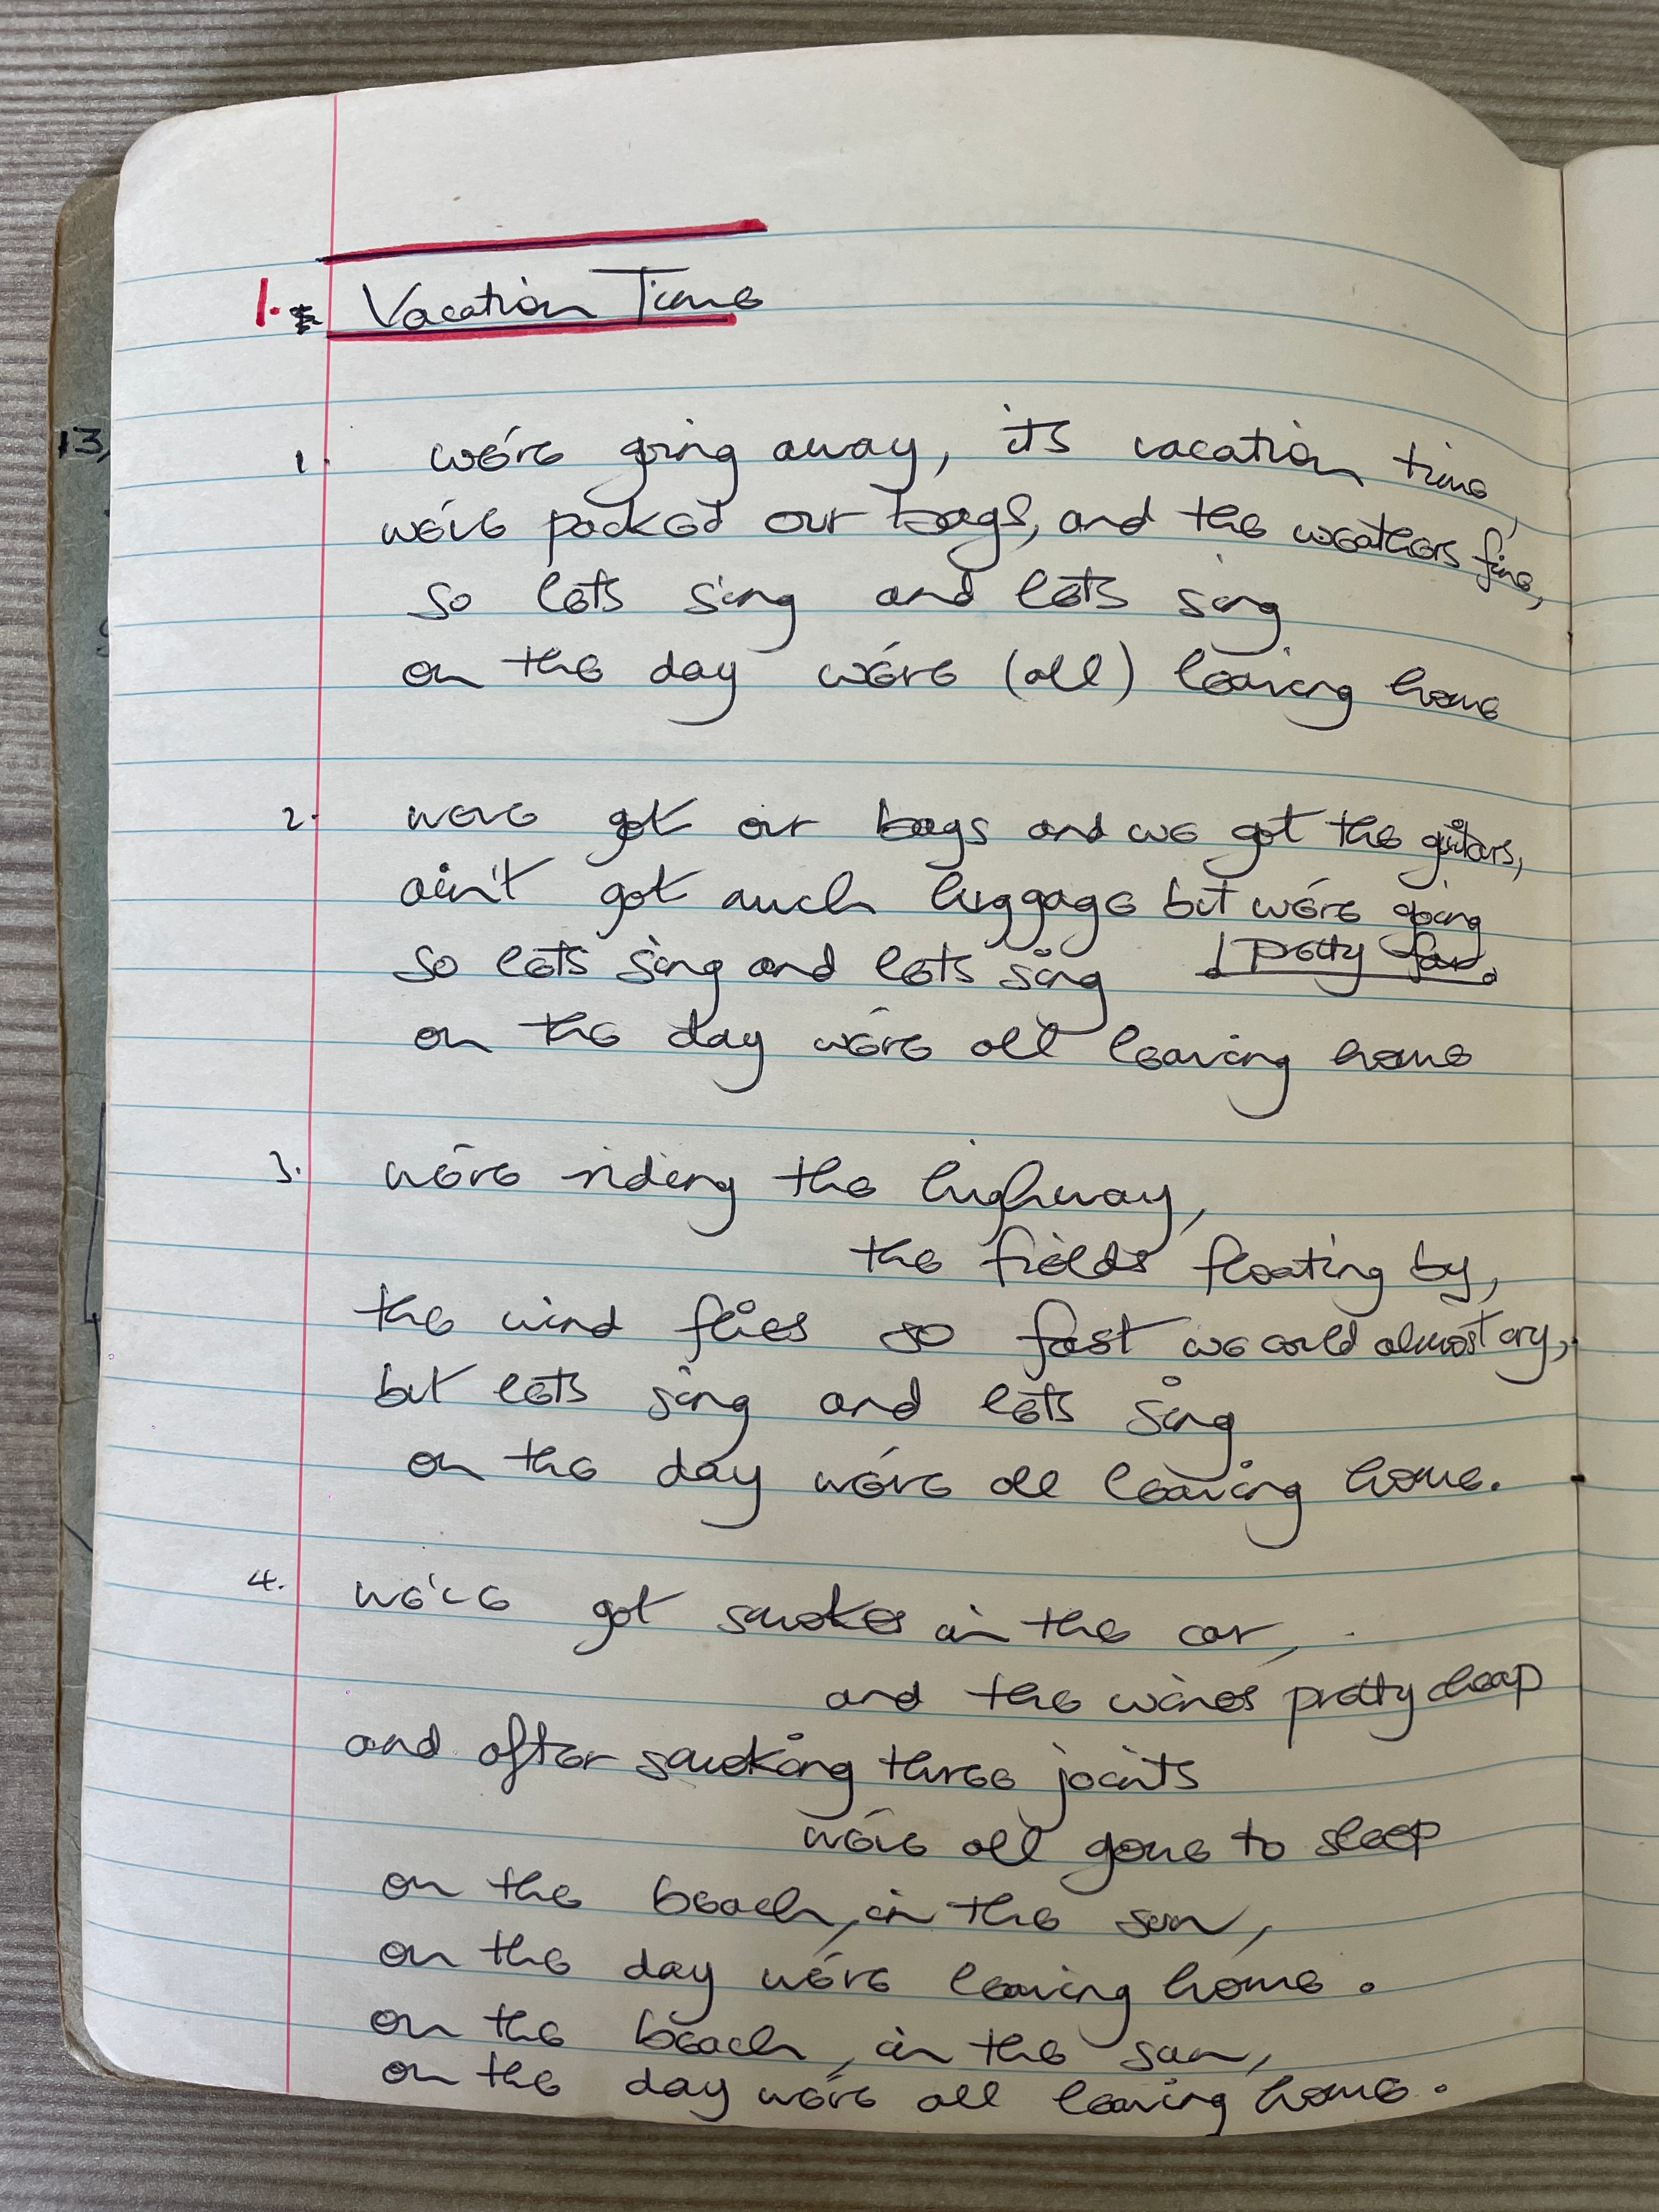 1. Vacation Time
1. we're going away, its vacation time,
we've packed our bags, and the weathers fine,
so lets sing and lets sing
on the day we're (all) leaving home
2. we've got our bags and we got the guitars,
ain't got much luggage but we're going
pretty far.
so lets sing and lets sing
on the day we're all leaving home
3. we're riding the highway,
the fields floating by,
the wind flies so fast we could almost cry,
but lets sing and lets sing
on the day we're all leaving home.
4. we've got smokes in the car,
and the wines pretty cheap
and after smoking three joints
we've all gone to sleep
on the beach, in the sun,
on the day we're leaving home.
on the beach, in the sun,
on the day we're all leaving home.
13,